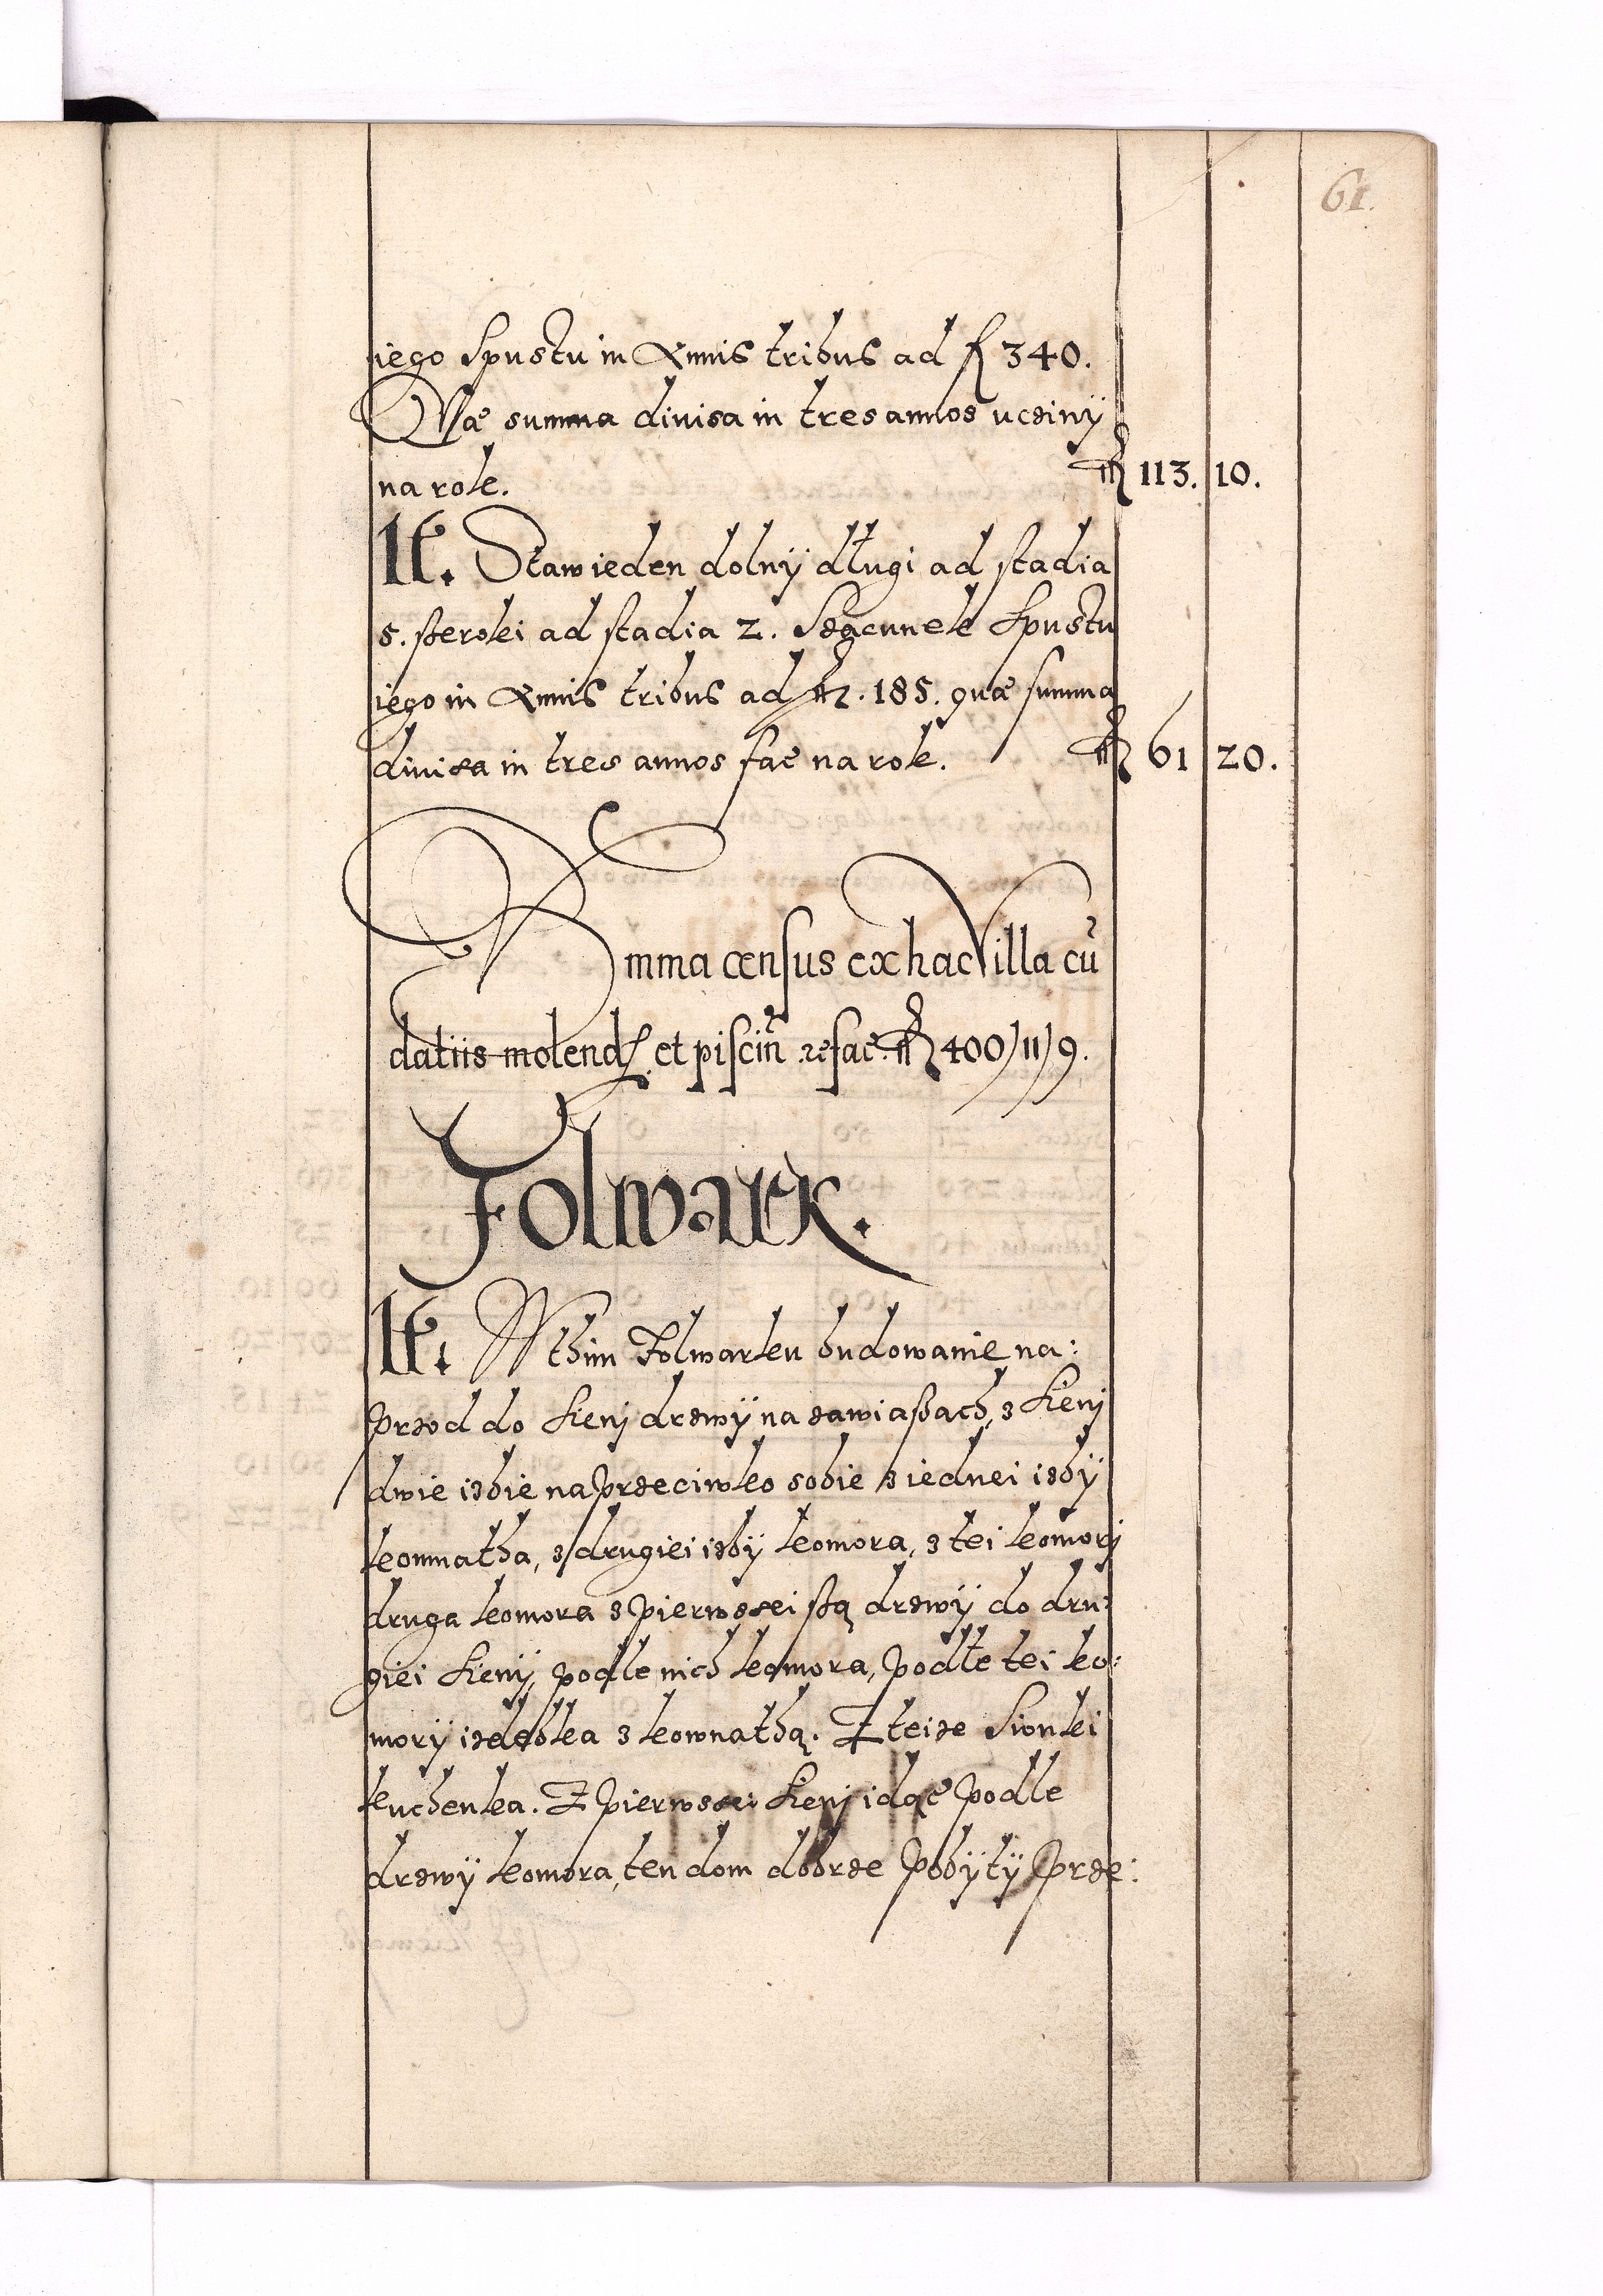 61.
iego Spustu in Annis tribus ad fl 340.
Quæ summa divisa in tres annos uczinÿ
na rok. fl 113. 10.
It. Staw ieden dolnÿ długi ad stadia
5. szeroki ad stadia 2. Szacunek Spustu
iego in Annis tribus ad fl. 185. quæ summa
divisa in tres annos fac na rok. fl 61 20.
Summa census ex hac Villa cũ
datiis molend. et piscin refac. fl 400/11/9.
Folwark.
It. W thim Folwarku budowanie na:
przod do Sieni drzwÿ na zawiaszach, z Sieni
dwie izbie naprzeciwko sobie z iednei izbÿ
komnatha, z drugiei izbÿ komora, z tei komori
druga komora z pierwszei szą drzwÿ do dru:
giei Sienÿ, podle nich komora, podłe tei ko:
morÿ izdebka z kownathą. Z teize Sionki
kuchenka. Z pierwszei Sieni idąc podle
drzwÿ komora, ten dom dobrze pobÿtÿ prze: